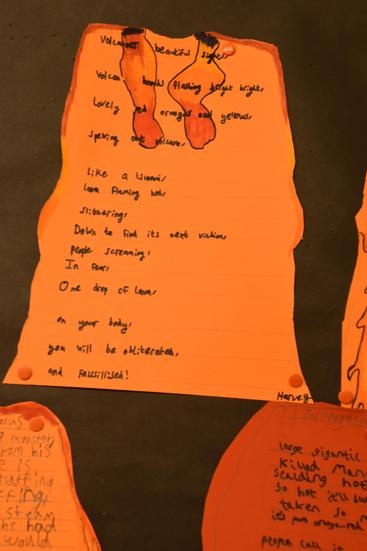 Volcanos beautiful sights,
Volcan bombs flashing bright brights,
Lovely red oranges and yellows,
Spewing out volcano,
Like a tsunami,
lava flaming hot,
Slithering,
Down to find its next victim,
people screaming,
In fear,
One drop of lava,
on your body,
you will be obliterated,
and fassilised!
Harvey
monster
from his
e is
stuffing
steam
he had
would
large gigantic
killed Many
scalding hot
so hot it'll
taken so
people call